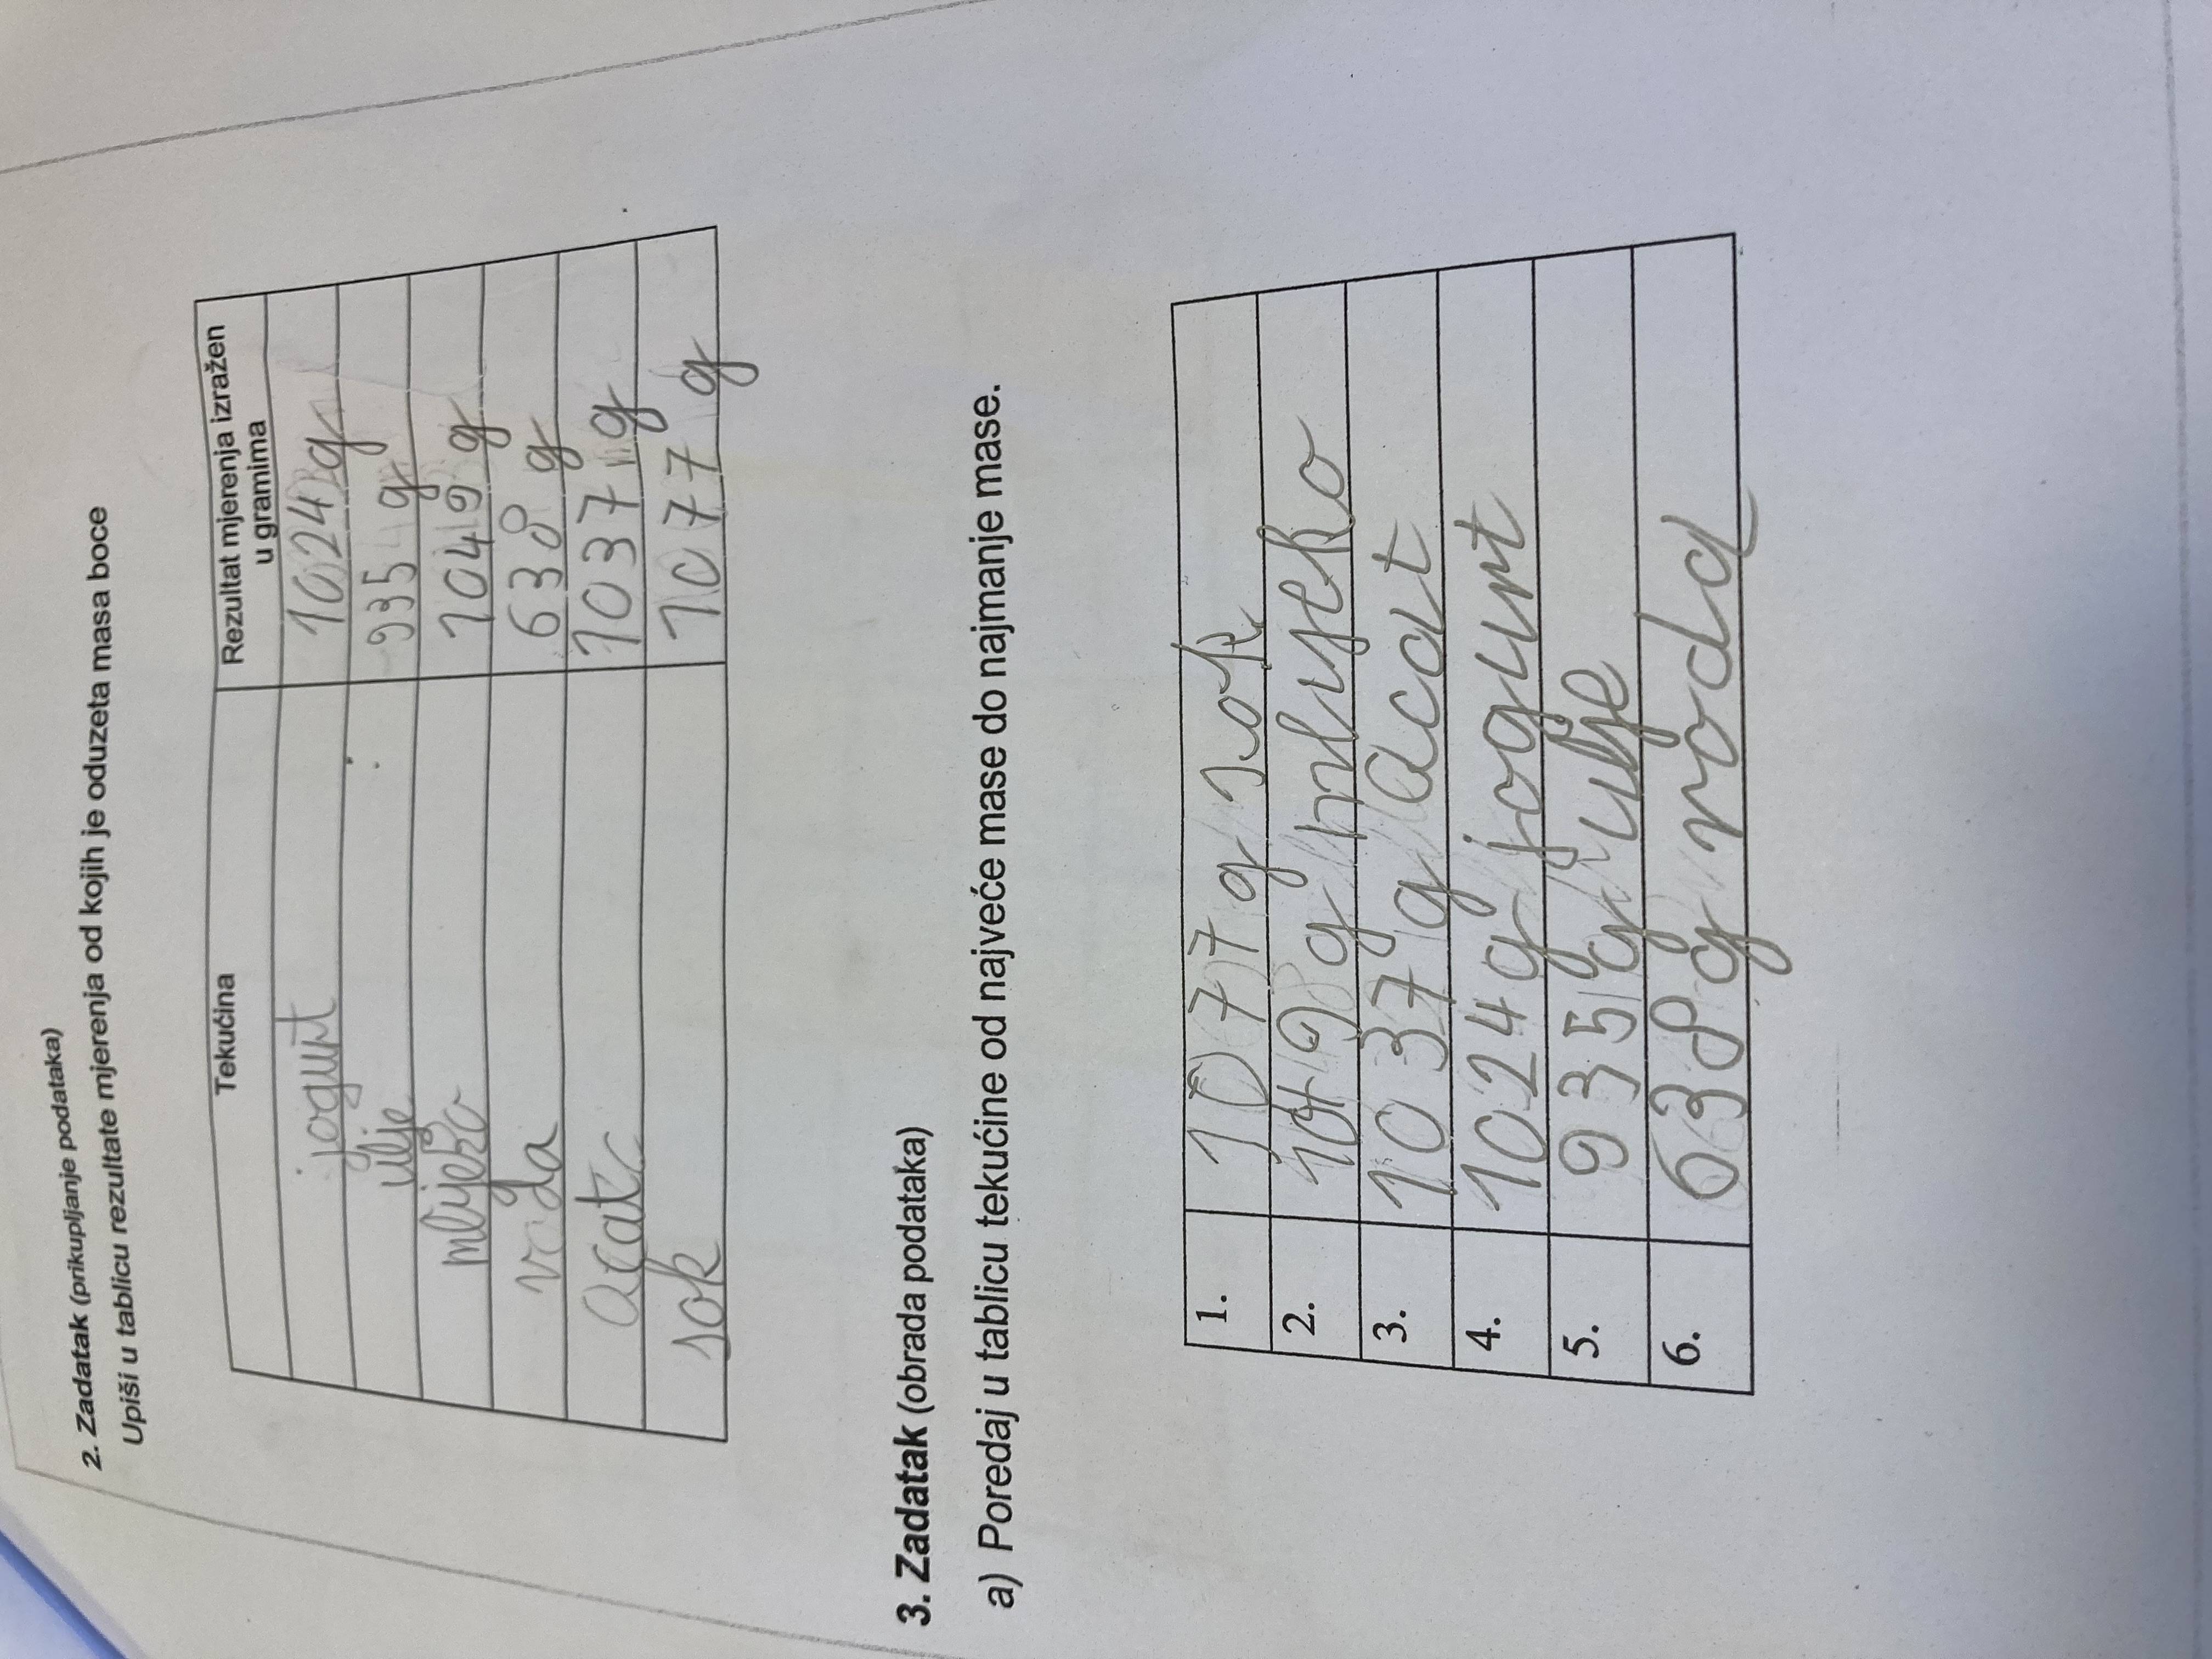 2. Zadatak (prikupljanje podataka)
Upiši u tablicu rezultate mjerenja od kojih je oduzeta masa boce
Tekućina Rezultat mjerenja izražen u gramima
jogurt 1024 g
ulje 935 g
mlijeko 1049 g
voda 638 g
acatc 1037 g
sok 1077 g
3. Zadatak (obrada podataka)
a) Poredaj u tablicu tekućine od najveće mase do najmanje mase.
1. 1077 g sok
2. 1049 g mlijeko
3. 1037 g acat
4. 1024 g jogurt
5. 935 g ulje
6. 638 g voda